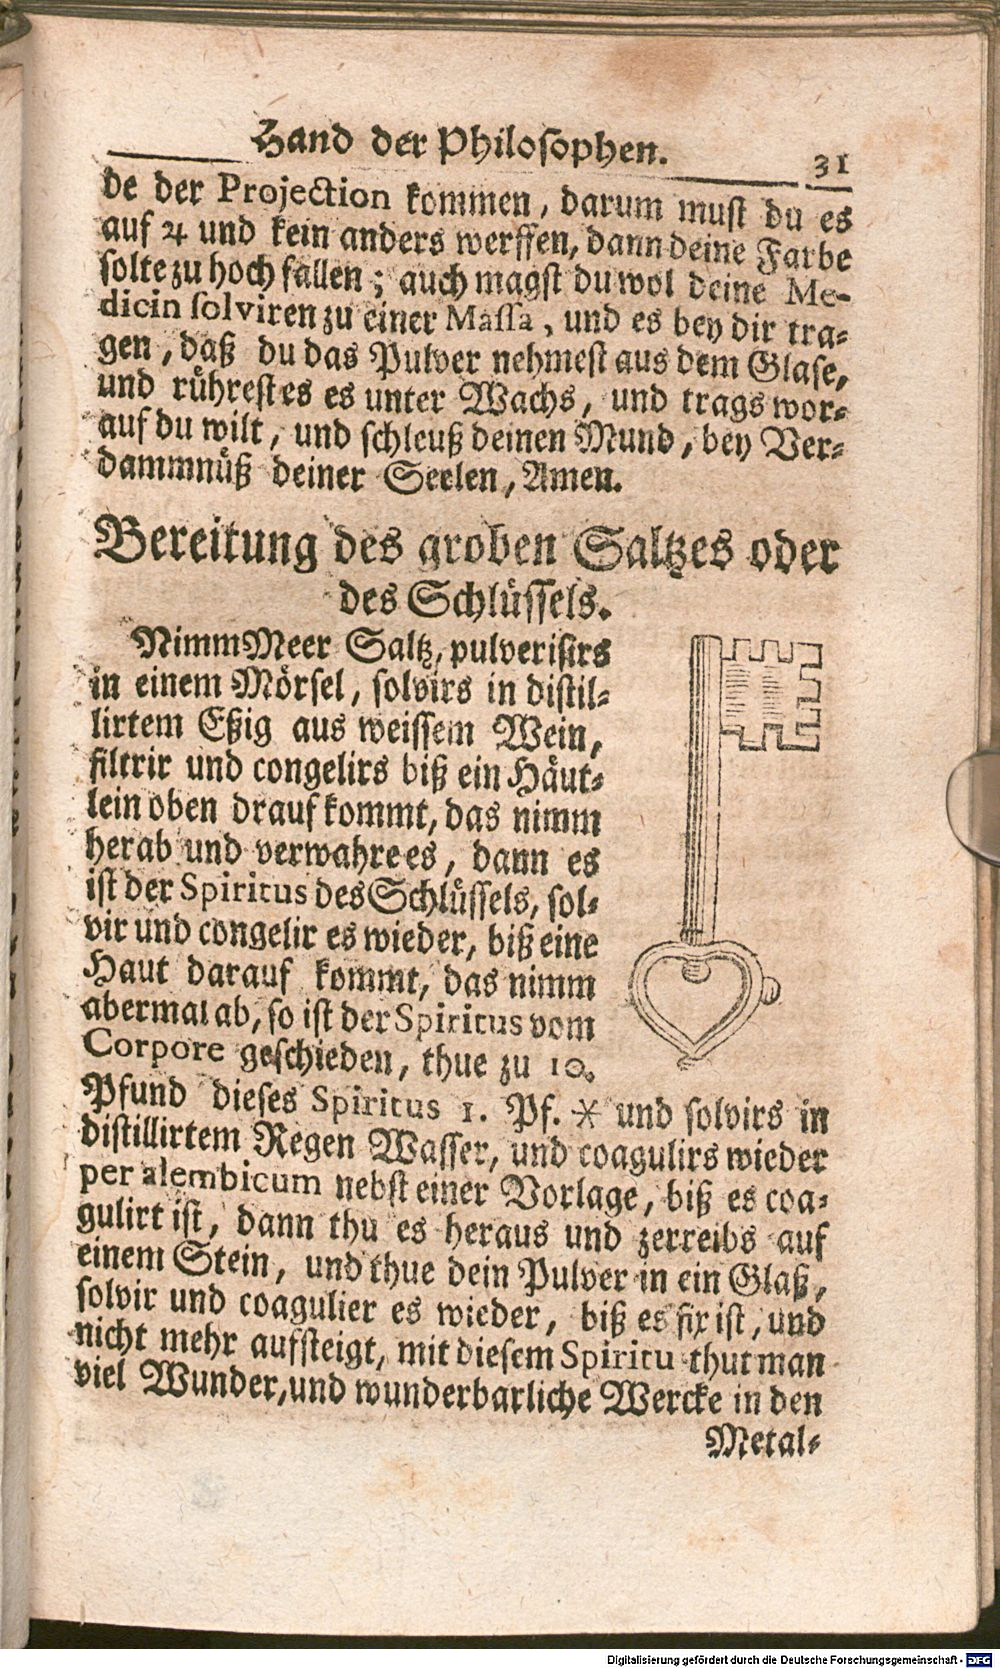 Hand der Philosophen. 31
de der Projection kommen, darum must du es
auf ♃ und kein anders werffen, dann deine Farbe
solte zu hoch fallen; auch magst du wol deine Me-
dicin solviren zu einer Massa, und es bey dir tra-
gen, daß du das Pulver nehmest aus dem Glase,
und rührest es es unter Wachs, und trags wor-
auf du wilt, und schleuß deinen Mund, bey Ver-
dammnüß deiner Seelen, Amen.
Bereitung des groben Saltzes oder
des Schlüssels.
Nimm Meer Saltz, pulverisirs
in einem Mörsel, solvirs in distil-
lirtem Eßig aus weissem Wein,
filtrir und congelirs biß ein Häut-
lein oben drauf kommt, das nimm
herab und verwahre es, dann es
ist der Spiritus des Schlüssels, sol-
vir und congelir es wieder, biß eine
Haut darauf kommt, das nimm
abermal ab, so ist der Spiritus vom
Corpore geschieden, thue zu 10.
Pfund dieses Spiritus 1. Pf. ⚹ und solvirs in
distillirtem Regen Wasser, und coagulirs wieder
per alembicum nebst einer Vorlage, biß es coa-
gulirt ist, dann thu es heraus und zerreibs auf
einem Stein, und thue dein Pulver in ein Glaß,
solvir und coagulier es wieder, biß es fix ist, und
nicht mehr aufsteigt, mit diesem Spiritu thut man
viel Wunder, und wunderbarliche Wercke in den
Metal-
Digitalisierung gefördert durch die Deutsche Forschungsgemeinschaft - DFG